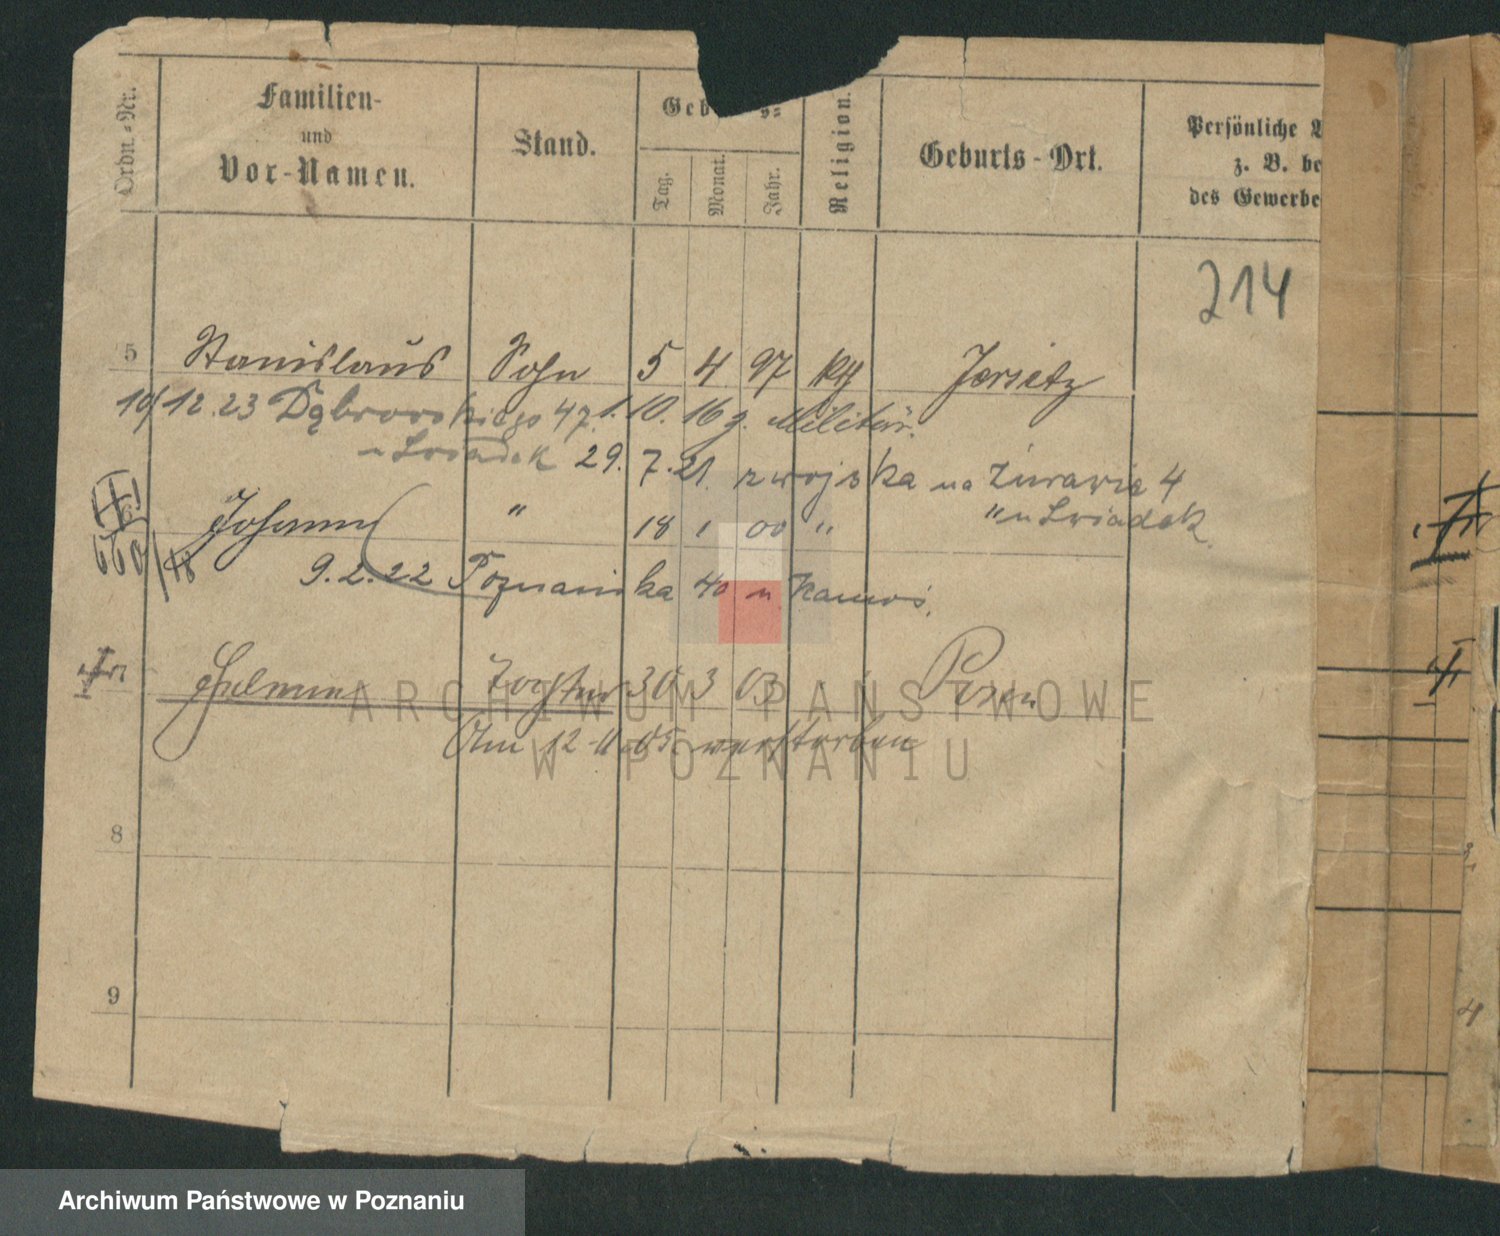 Ordn.=Nr.
Familien-
und
Vor-Namen.
Stand.
Geb s=
Tag.
Monat.
Jahr.
Religion.
Geburts-Ort.
Persönliche
z. B. be
des Gewerbe
214
5 Stanislaus Sohn 5 4 97 Jersitz
10/12.23 Dąbrowskiego 47. 1.10.16 z. Militär.
u Świadek 29.7.21. z wojska na Żurawia 4
" u Świadek
Johann " 18 1 00 "
660/48
9.2.22 Poznańska 40 u
Tochter 30 3 03 Posen
Am 12-11-05 verstorben
8
9
4
ARCHIWUM PAŃSTWOWE
W POZNANIU
Archiwum Państwowe w Poznaniu